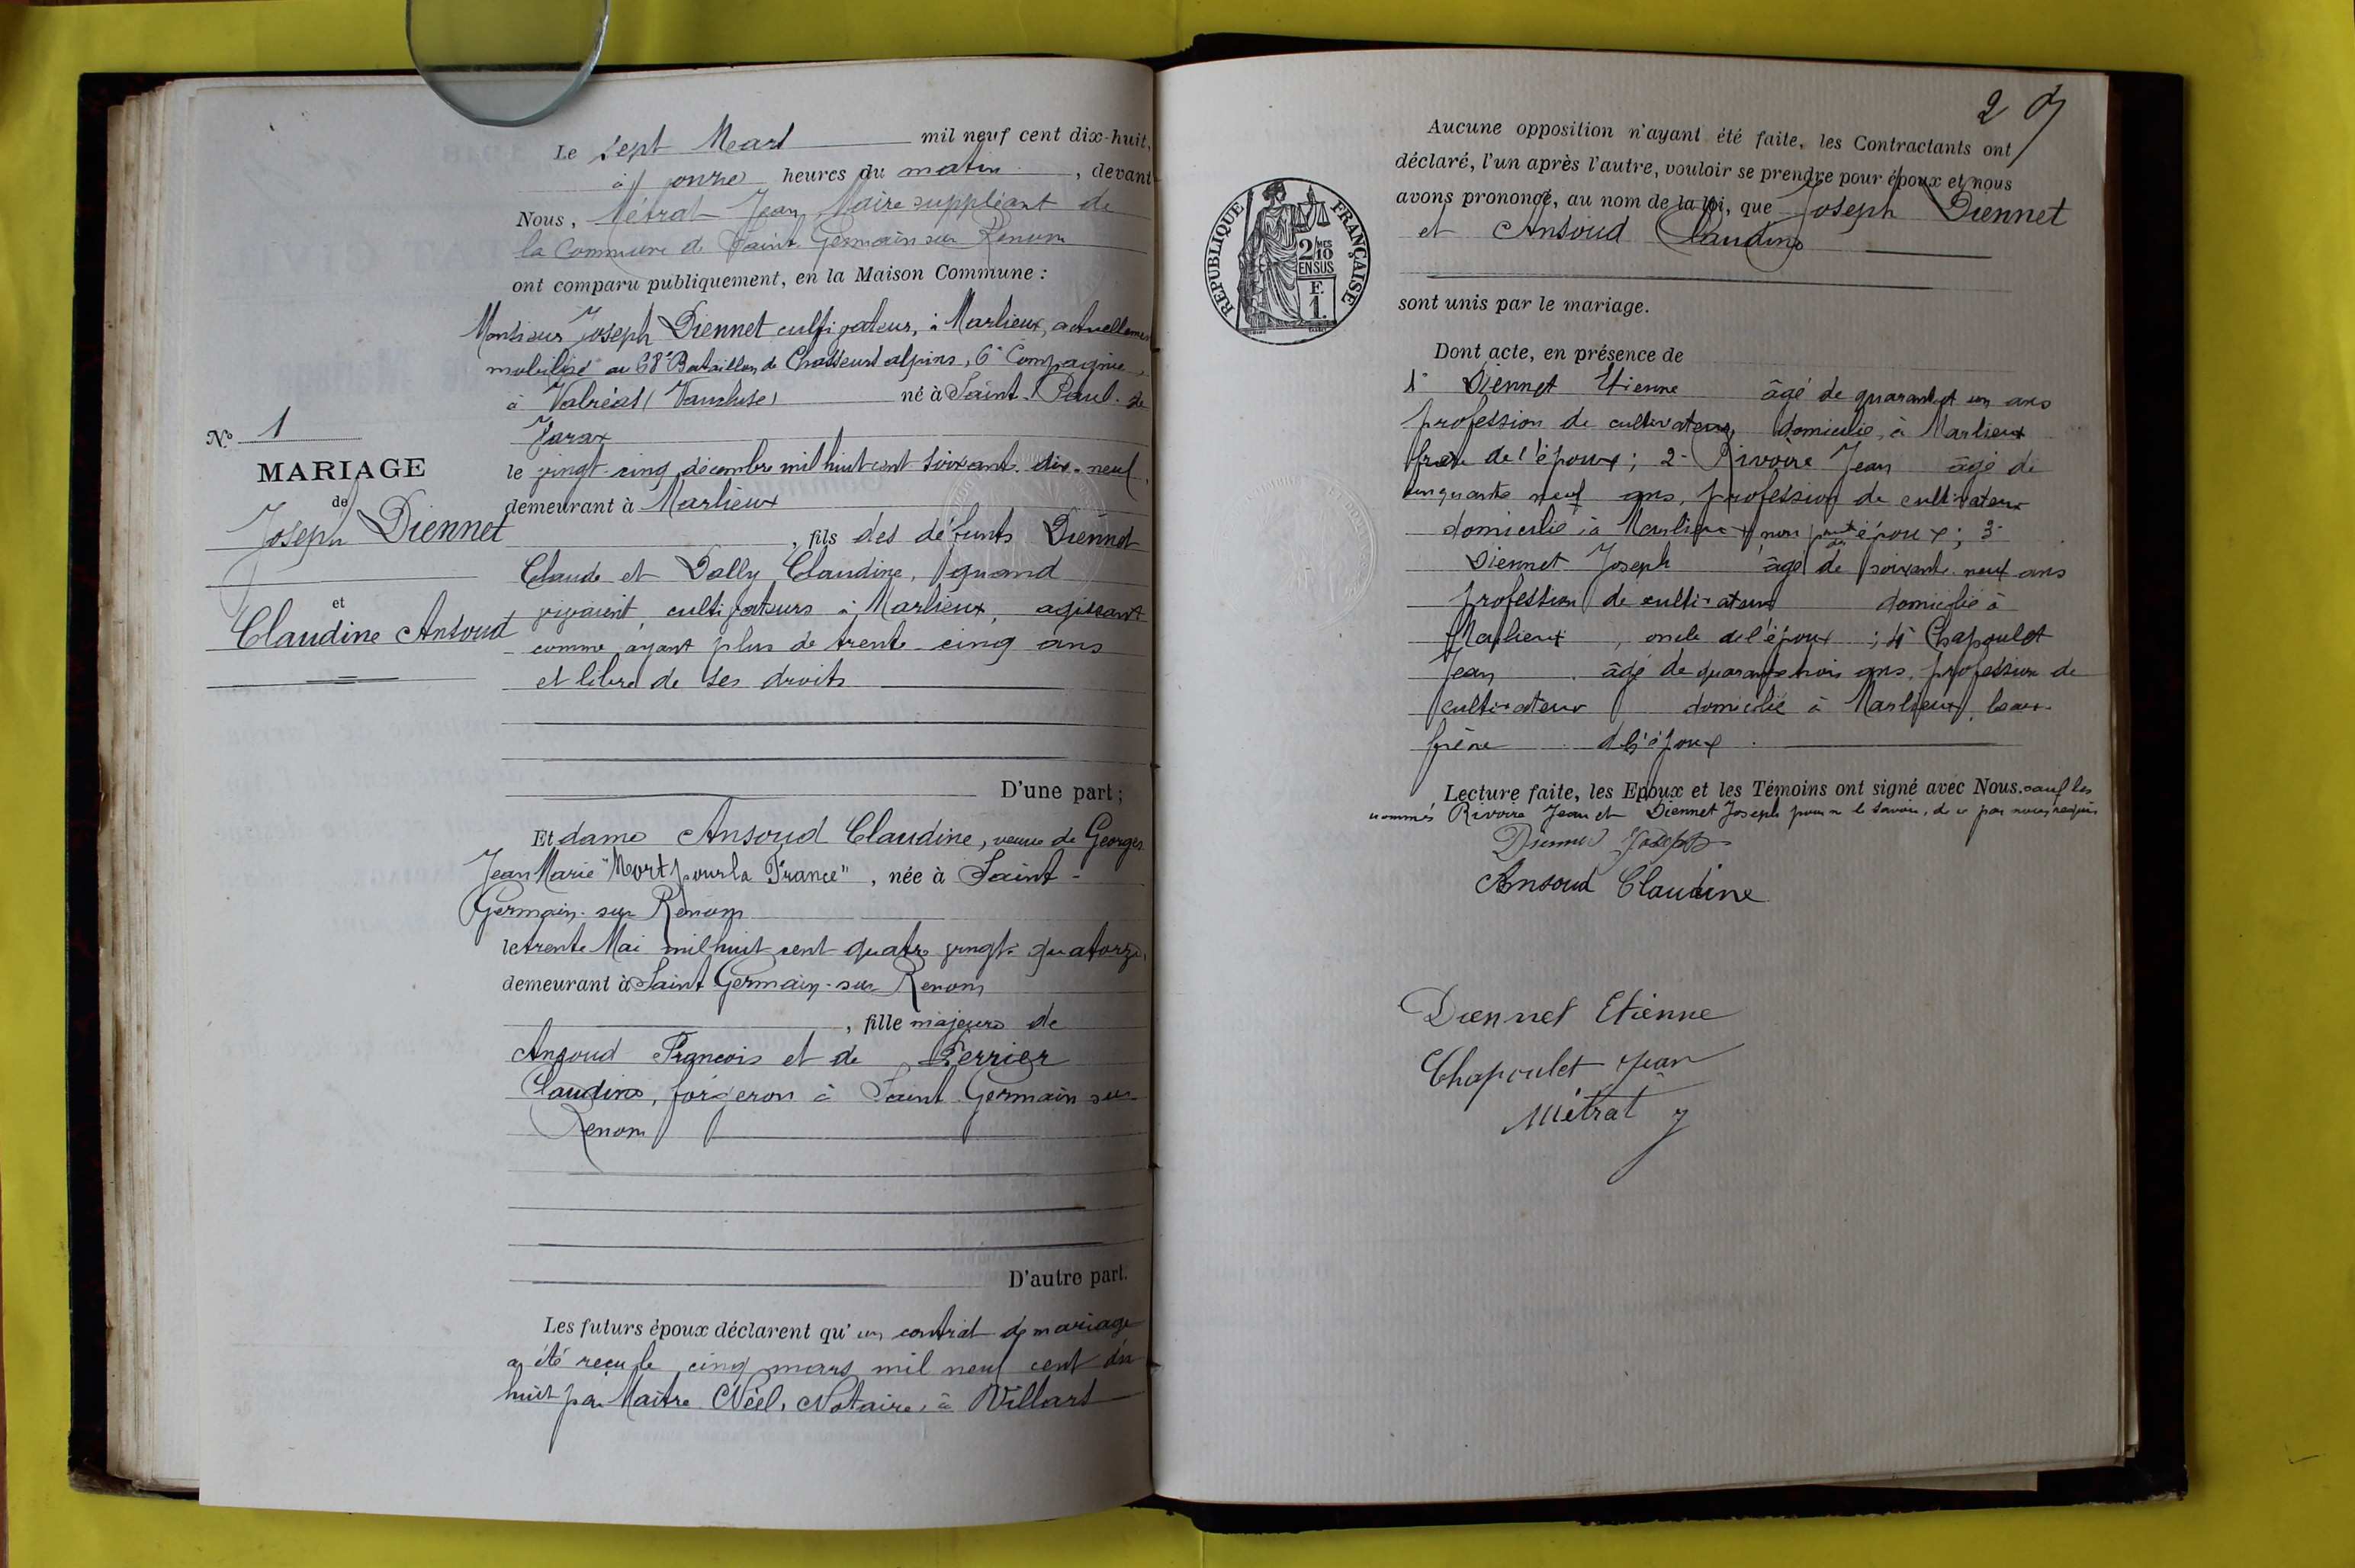 Le sept Mars mil neuf cent dix-huit,
à onze heures du matin, devant
Nous, Métrat Jean Maire suppléant de
la Commune de Saint Germain sur Renom
ont comparu publiquement, en la Maison Commune :
Monsieur Joseph Diennet cultivateur, à Marlieux, actuellement
mobilisé au 68e Bataillon de Chasseurs alpins, 6e Compagnie
à Valréas (Vaucluse) né à Saint-Paul-de
Varax
le vingt-cinq décembre mil huit cent soixante-dix-neuf,
demeurant à Marlieux
, fils des défunts Diennet
Claude et Dally Claudine, quand
vivaient, cultivateurs à Marlieux, agissant
comme ayant plus de trente-cinq ans
et libre de ses droits
D'une part ;
N° 1
MARIAGE
de
Joseph Diennet
et
Claudine Ansoud
Et dame Ansoud Claudine, veuve de Georges
Jean Marie "Mort pour la France", née à Saint-
Germain-sur Renom
le trente Mai mil huit cent quatre vingt-quatorze,
demeurant à Saint Germain-sur Renom
, fille majeure de
Ansoud François et de Perrier
Claudine, forgeron à Saint Germain sur
Renom
D'autre part.
Les futurs époux déclarent qu'un contrat de mariage
a été reçu le cinq mars mil neuf cent dix
huit par Maître Néel, Notaire, à Villars
2
REPUBLIQUE FRANÇAISE
2/10 MES
EN SUS
F.
1.
Aucune opposition n'ayant été faite, les Contractants ont
déclaré, l'un après l'autre, vouloir se prendre pour époux et nous
avons prononcé, au nom de la loi, que Joseph Diennet
et Ansoud Claudine
sont unis par le mariage.
Dont acte, en présence de
1° Diennet Etienne âgé de quarante et un ans
profession de cultivateur, domicilié, à Marlieux
frère de l'époux ; 2° Rivoire Jean âgé de
cinquante neuf ans, profession de cultivateur
domicilié à Marlieux non parent des époux ; 3°
Diennet Joseph âgé de soixante neuf ans
profession de cultivateur domicilié à
Marlieux, oncle de l'époux ; 4° Chapoulet
Jean âgé de quarante trois ans, profession de
cultivateur domicilié à Marlieux, beau-
frère de l'époux.
Lecture faite, les Epoux et les Témoins ont signé avec Nous. sauf les
nommés Rivoire Jean et Diennet Joseph pour ne le savoir, de ce par nous requis
Diennet Joseph
Ansoud Claudine
Diennet Etienne
Chapoulet Jean
Métrat J